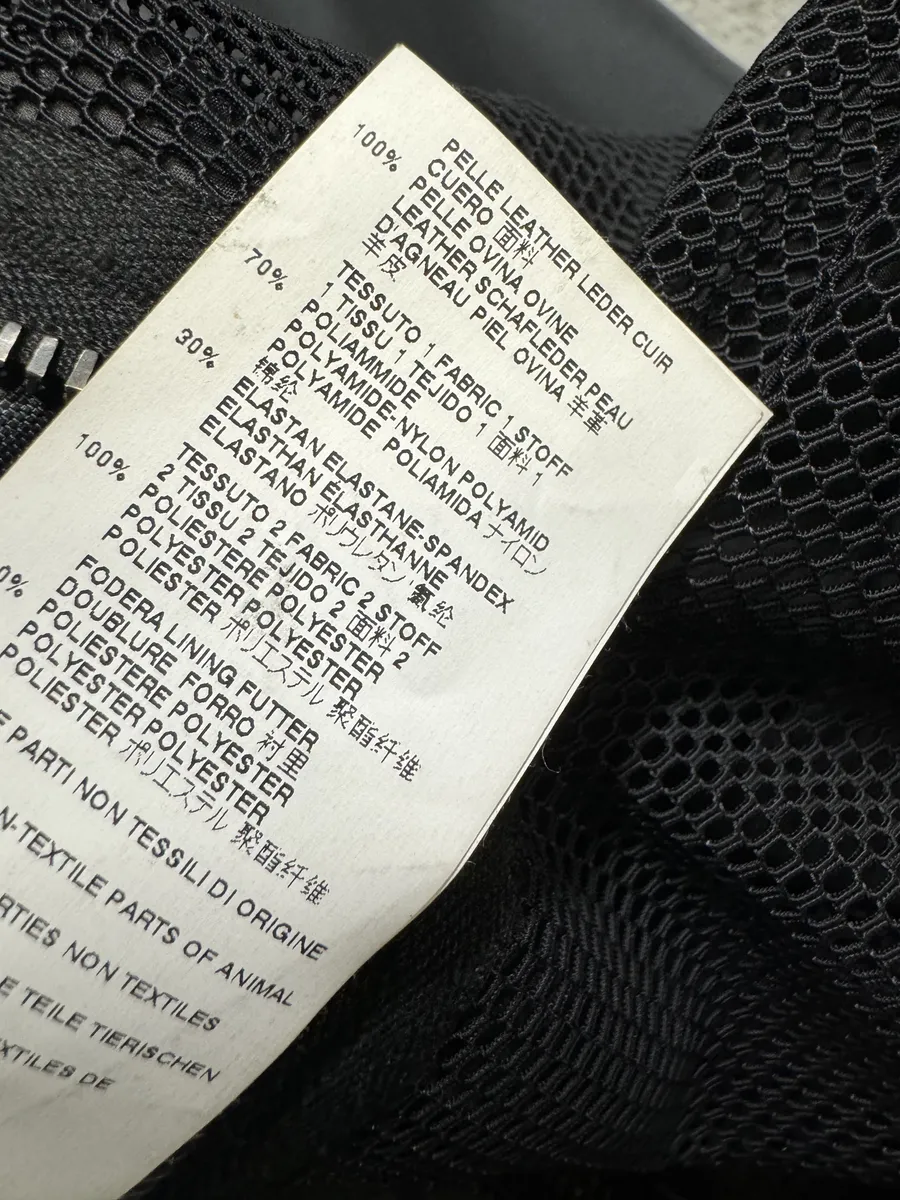 100% PELLE LEATHER LEDER CUIR
CUERO 面料
PELLE OVINA OVINE
LEATHER SCHAFLEDER PEAU
D'AGNEAU PIEL OVINA 羊革
羊皮
TESSUTO 1 FABRIC 1 STOFF
1 TISSU 1 TEJIDO 1 面料 1
70% POLIAMMIDE
POLYAMIDE-NYLON POLYAMID
POLYAMIDE POLIAMIDA ナイロン
锦纶
30% ELASTAN ELASTANE-SPANDEX
ELASTHAN ÉLASTHANNE
ELASTANO ポリウレタン 氨纶
TESSUTO 2 FABRIC 2 STOFF
2 TISSU 2 TEJIDO 2 面料 2
100% POLIESTERE POLYESTER
POLYESTER POLYESTER
POLIESTER ポリエステル 聚酯纤维
FODERA LINING FUTTER
DOUBLURE FORRO 衬里
0% POLIESTERE POLYESTER
POLYESTER POLYESTER
POLIESTER ポリエステル 聚酯纤维
E PARTI NON TESSILI DI ORIGINE
N-TEXTILE PARTS OF ANIMAL
RTIES NON TEXTILES
E TEILE TIERISCHEN
XTILES DE